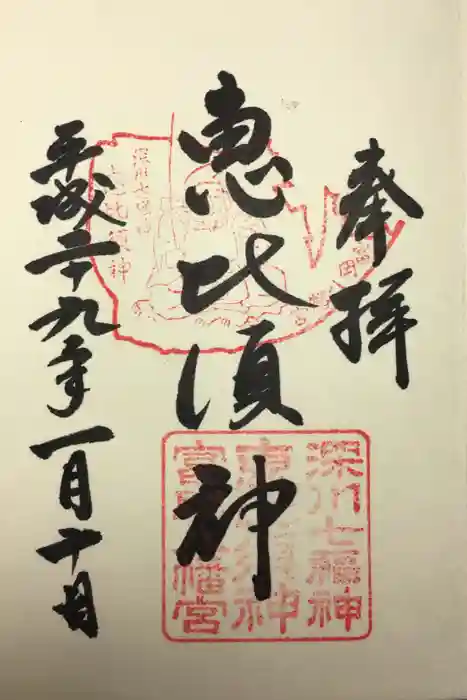 奉拝
恵比須神
平成二十九年一月十日
深川七福神
恵比須神
富岡八幡宮
深川七福神
恵比須神
富岡八幡宮